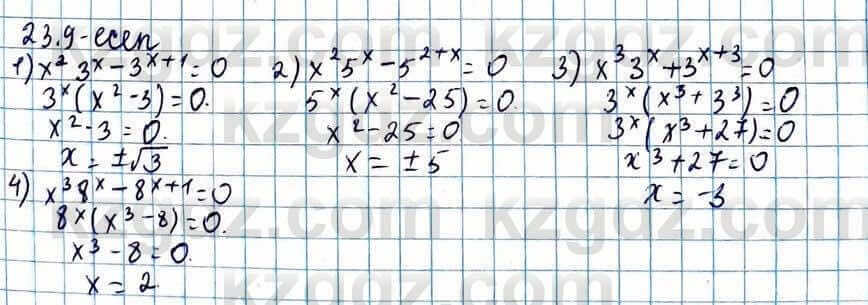 23.9-есеп
1) x² 3ˣ - 3ˣ⁺¹ = 0
3ˣ(x² - 3) = 0.
x² - 3 = 0.
x = ±√3
2) x² 5ˣ - 5²⁺ˣ = 0
5ˣ(x² - 25) = 0.
x² - 25 = 0
x = ±5
3) x³ 3ˣ + 3ˣ⁺³ = 0
3ˣ(x³ + 3³) = 0
3ˣ(x³ + 27) = 0
x³ + 27 = 0
x = -3
4) x³ 8ˣ - 8ˣ⁺¹ = 0
8ˣ(x³ - 8) = 0.
x³ - 8 = 0.
x = 2
kzgdz.com